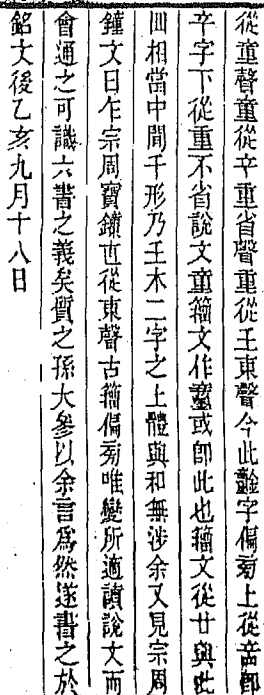 從童聲童從䇂重省聲重從𡈼東聲今此龤字偏旁上從啻郎
䇂字下從重不省說文童籀文作𥪖或即此也籀文從廿與此
𠙽相當中間千形乃壬木二字之上體與和無涉余又見宗周
鐘文曰乍宗周寶鐘也從東聲古籀偏旁唯變所適讀說文而
會通之可識六書之義矣質之孫大參以余言爲然遂書之於
銘文後乙亥九月十八日